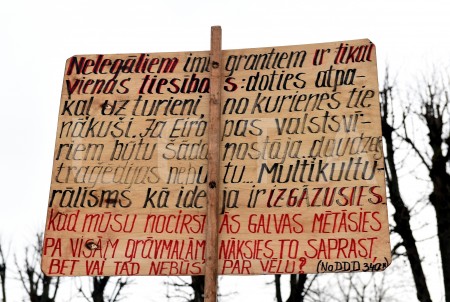 Nelegāliem imigrantiem ir tikai
vienas tiesības: doties atpa-
kaļ uz turieni, no kurienes tie
nākuši. Ja Eiropas valstsvī-
riem būtu šāda nostāja, daudzu
traģēdijas nebūtu... Multikultu-
rālisms kā ideja ir IZGĀZUSIES.
KAD MŪSU NOCIRSTĀS GALVAS MĒTĀSIES
PA VISĀM GRĀVMALĀM, NĀKSIES TO SAPRAST,
BET VAI TAD NEBŪS PAR VĒLU?